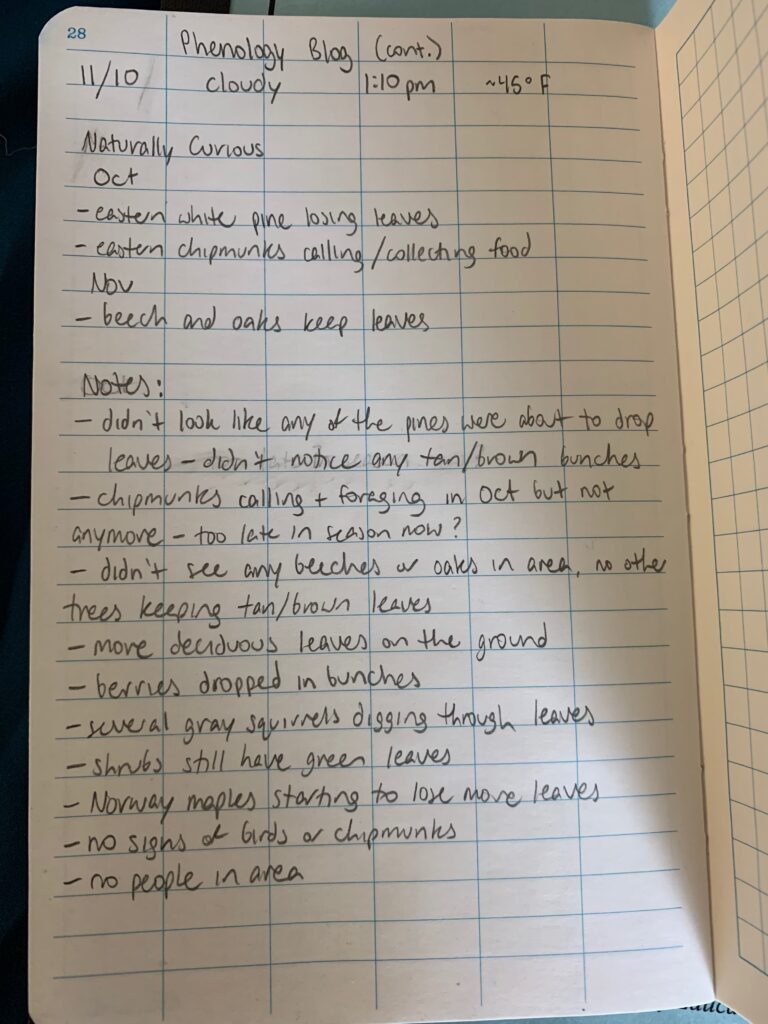 28
Phenology Blog (cont.)
11/10 cloudy 1:10 pm ~45° F
Naturally Curious
Oct
- eastern white pine losing leaves
- eastern chipmunks calling/collecting food
Nov
- beech and oaks keep leaves
Notes:
- didn't look like any of the pines were about to drop
leaves - didn't notice any tan/brown bunches
- chipmunks calling + foraging in Oct but not
anymore - too late in season now?
- didn't see any beeches or oaks in area, no other
trees keeping tan/brown leaves
- more deciduous leaves on the ground
- berries dropped in bunches
- several gray squirrels digging through leaves
- shrubs still have green leaves
- Norway maples starting to lose more leaves
- no signs of birds or chipmunks
- no people in area